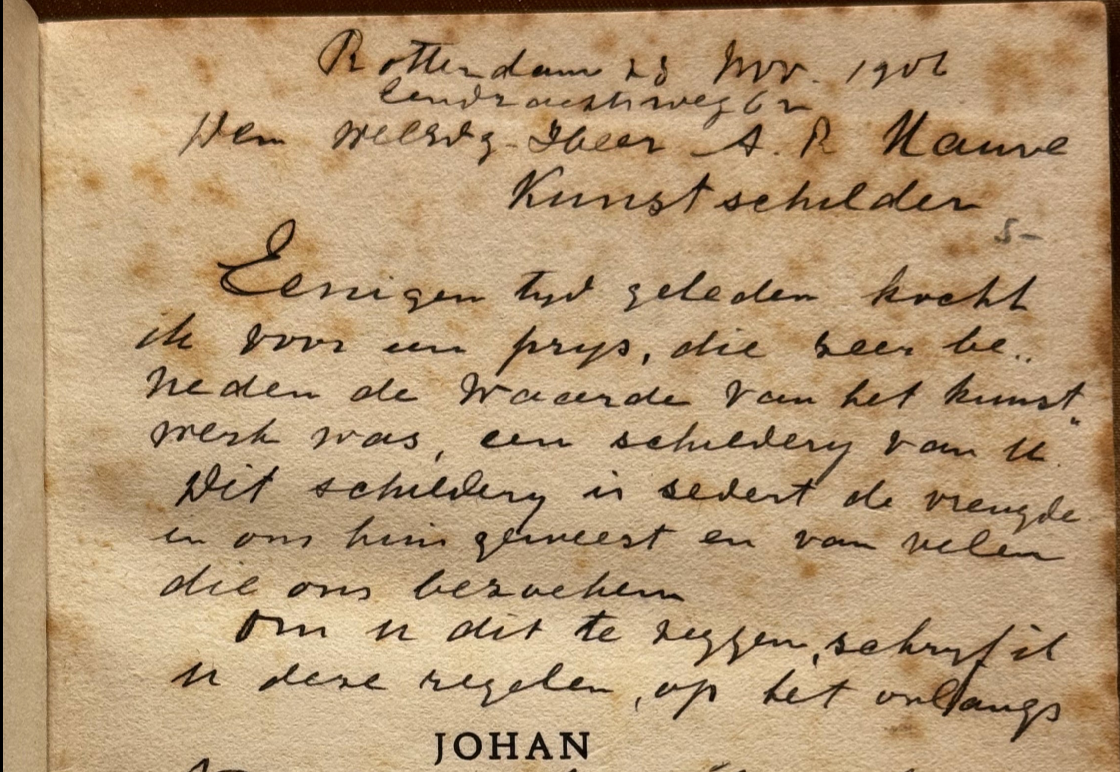 Rotterdam 23 Nov. 1906
Eendrachtsweg 62
Den WelEdg. Heer A. R. Mauve
Kunstschilder
5-
Eenigen tyd geleden kocht
ik voor een prys, die zeer be..
neden de waarde van het kunst"
werk was, een schildery van U.
Dit schildery is sedert de vreugde
in ons huis geweest en van velen
die ons bezoeken
Om u dit te zeggen, schryf ik
u deze regelen, op het onlangs
JOHAN